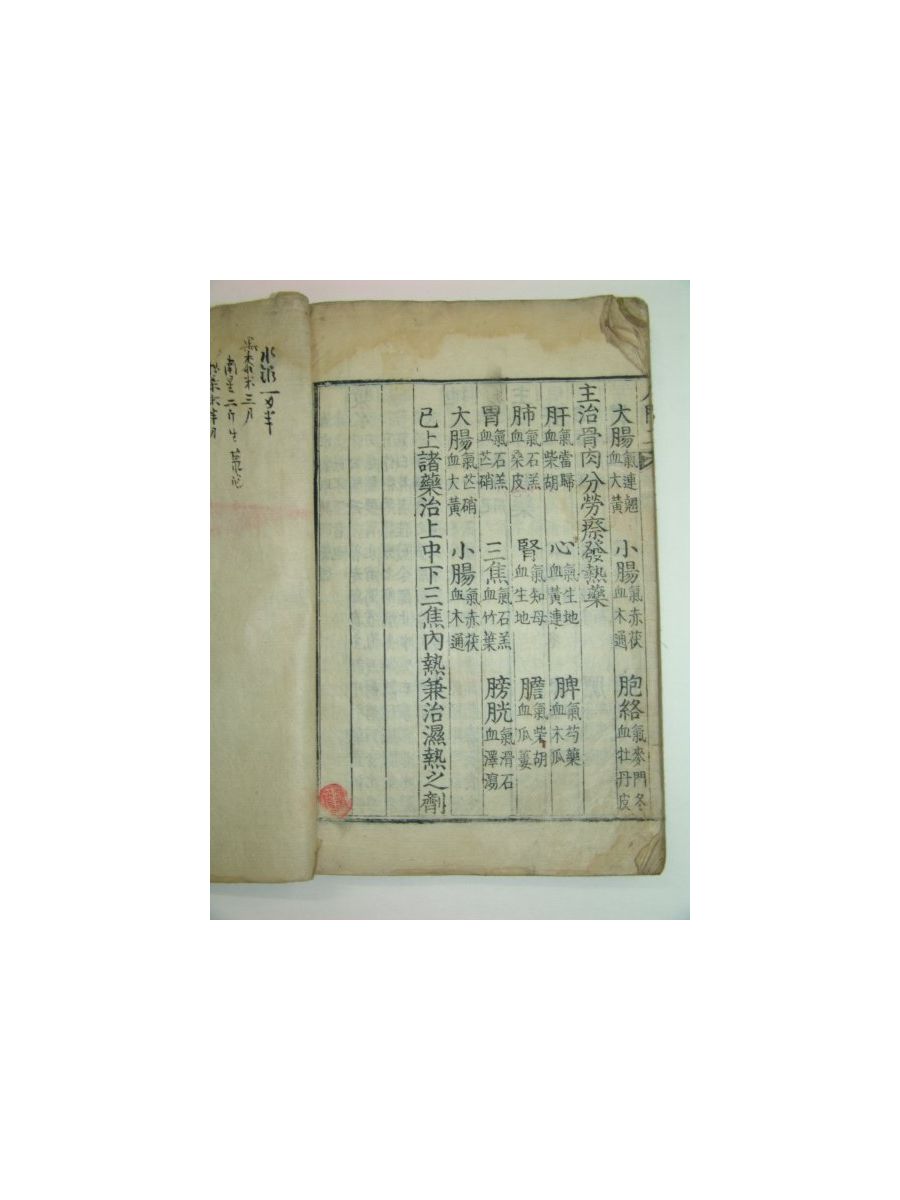 大腸氣連翹血大黃 小腸氣赤茯血木通 胞絡氣麥門冬血牡丹皮
主治骨肉分勞瘵發熱藥
肝氣當歸血柴胡 心氣生地血黃連 脾氣芍藥血木瓜
肺氣石羔血桑皮 腎氣知母血生地 膽氣柴胡血瓜蔞
胃氣石羔血芒硝 三焦氣石羔血竹葉 膀胱氣滑石血澤瀉
大腸氣芒硝血大黃 小腸氣赤茯血木通
已上諸藥治上中下三焦內熱兼治濕熱之劑
水銀一
三月
南星二